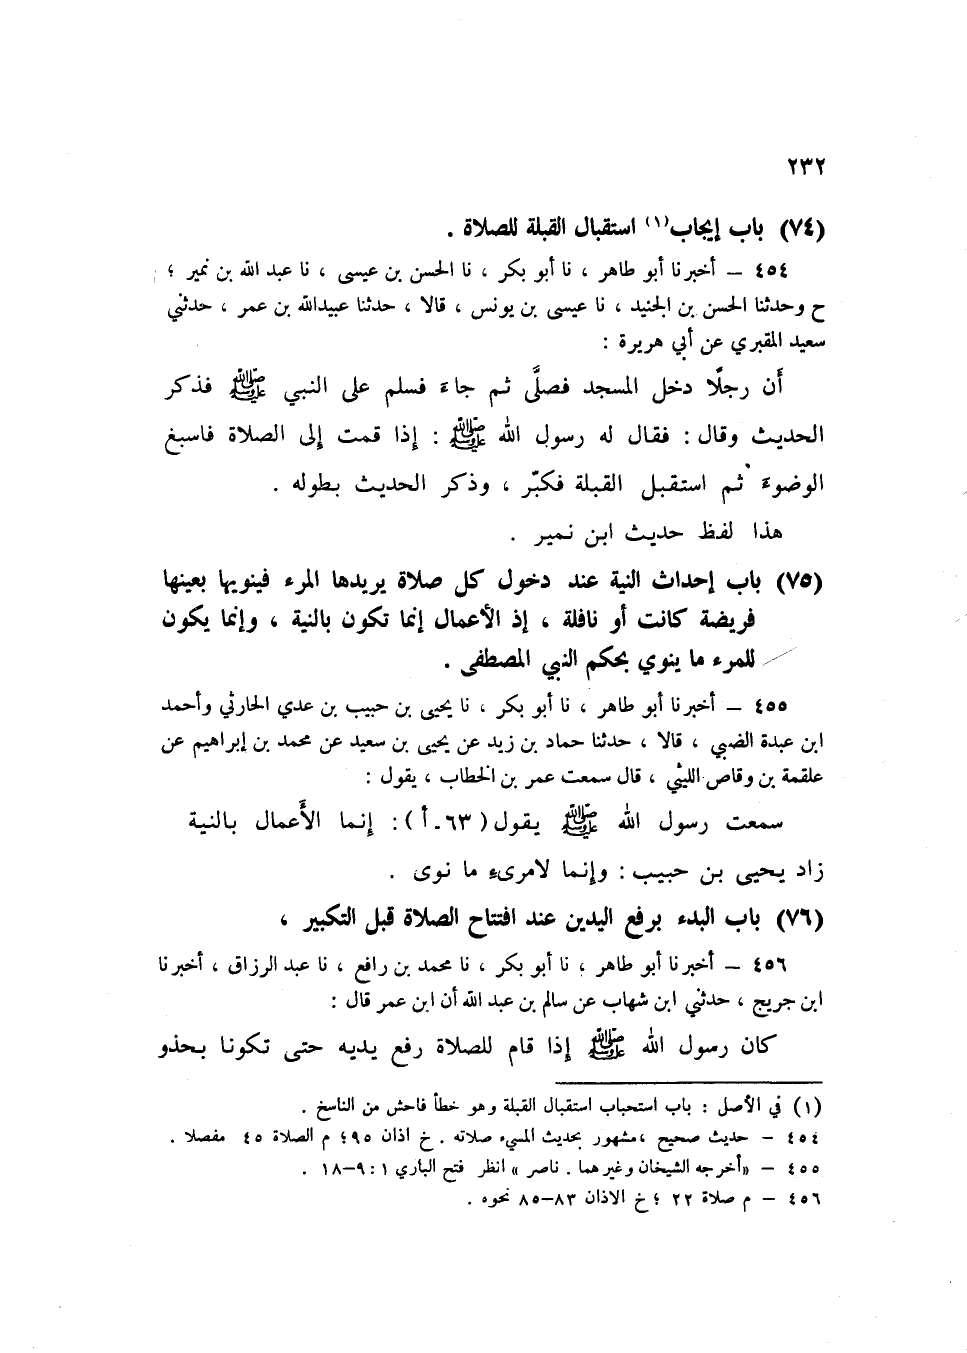 ٢٣٢
(٧٤) باب إيجاب(١) استقبال القبلة للصلاة .
٤٥٤ – أخبرنا أبو طاهر ، نا أبو بكر ، نا الحسن بن عيسى ، نا عبد الله بن نمير ؛
ح وحدثنا الحسن بن الجنيد ، نا عيسى بن يونس ، قالا ، حدثنا عبيدالله بن عمر ، حدثني
سعيد المقبري عن أبي هريرة :
أَن رجلًا دخل المسجد فصلَّى ثم جاءَ فسلم على النبي ﷺ فذكر
الحديث وقال : فقال له رسول الله ﷺ : إذا قمت إلى الصلاة فاسبغ
الوضوءَ ثم استقبل القبلة فكبّر ، وذكر الحديث بطوله .
هذا لفظ حديث ابن نمير .
(٧٥) باب إحداث النية عند دخول كل صلاة يريدها المرء فينويها بعينها
فريضة كانت أو نافلة ، إذ الأعمال إنما تكون بالنية ، وإنما يكون
للمرء ما ينوي بحكم النبي المصطفى .
٤٥٥ – أخبرنا أبو طاهر ، نا أبو بكر ، نا يحيى بن حبيب بن عدي الحارثي وأحمد
ابن عبدة الضبي ، قالا ، حدثنا حماد بن زيد عن يحيى بن سعيد عن محمد بن إبراهيم عن
علقمة بن وقاص الليثي ، قال سمعت عمر بن الخطاب ، يقول :
سمعت رسول الله ﷺ يقول (٦٣ـأ) : إنما الأَعمال بالنية
زاد يحيى بن حبيب : وإنما لامرىء ما نوى .
(٧٦) باب البدء برفع اليدين عند افتتاح الصلاة قبل التكبير ،
٤٥٦ – أخبرنا أبو طاهر ، نا أبو بكر ، نا محمد بن رافع ، نا عبد الرزاق ، أخبرنا
ابن جريج ، حدثني ابن شهاب عن سالم بن عبد الله أن ابن عمر قال :
كان رسول الله ﷺ إذا قام للصلاة رفع يديه حتى تكونا بحذو
(١) في الأصل : باب استحباب استقبال القبلة وهو خطأ فاحش من الناسخ .
٤٥٤ – حديث صحيح ، مشهور بحديث المسيء صلاته . خ اذان ٩٥ ؛ م الصلاة ٤٥ مفصلا .
٤٥٥ – «أخرجه الشيخان وغيرهما . ناصر» انظر فتح الباري ١ : ٩–١٨ .
٤٥٦ – م صلاة ٢٢ ؛ خ الاذان ٨٣–٨٥ نحوه .